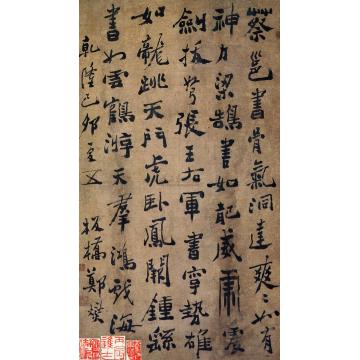 蔡邕書骨氣洞達爽〻如有
神力梁鵠書如龍威虎震
劍拔弩張王右軍書字勢雄
如龍跳天門虎臥鳳闕鍾繇
書如雲鶴游天羣鴻戲海
乾隆己卯五板橋鄭燮